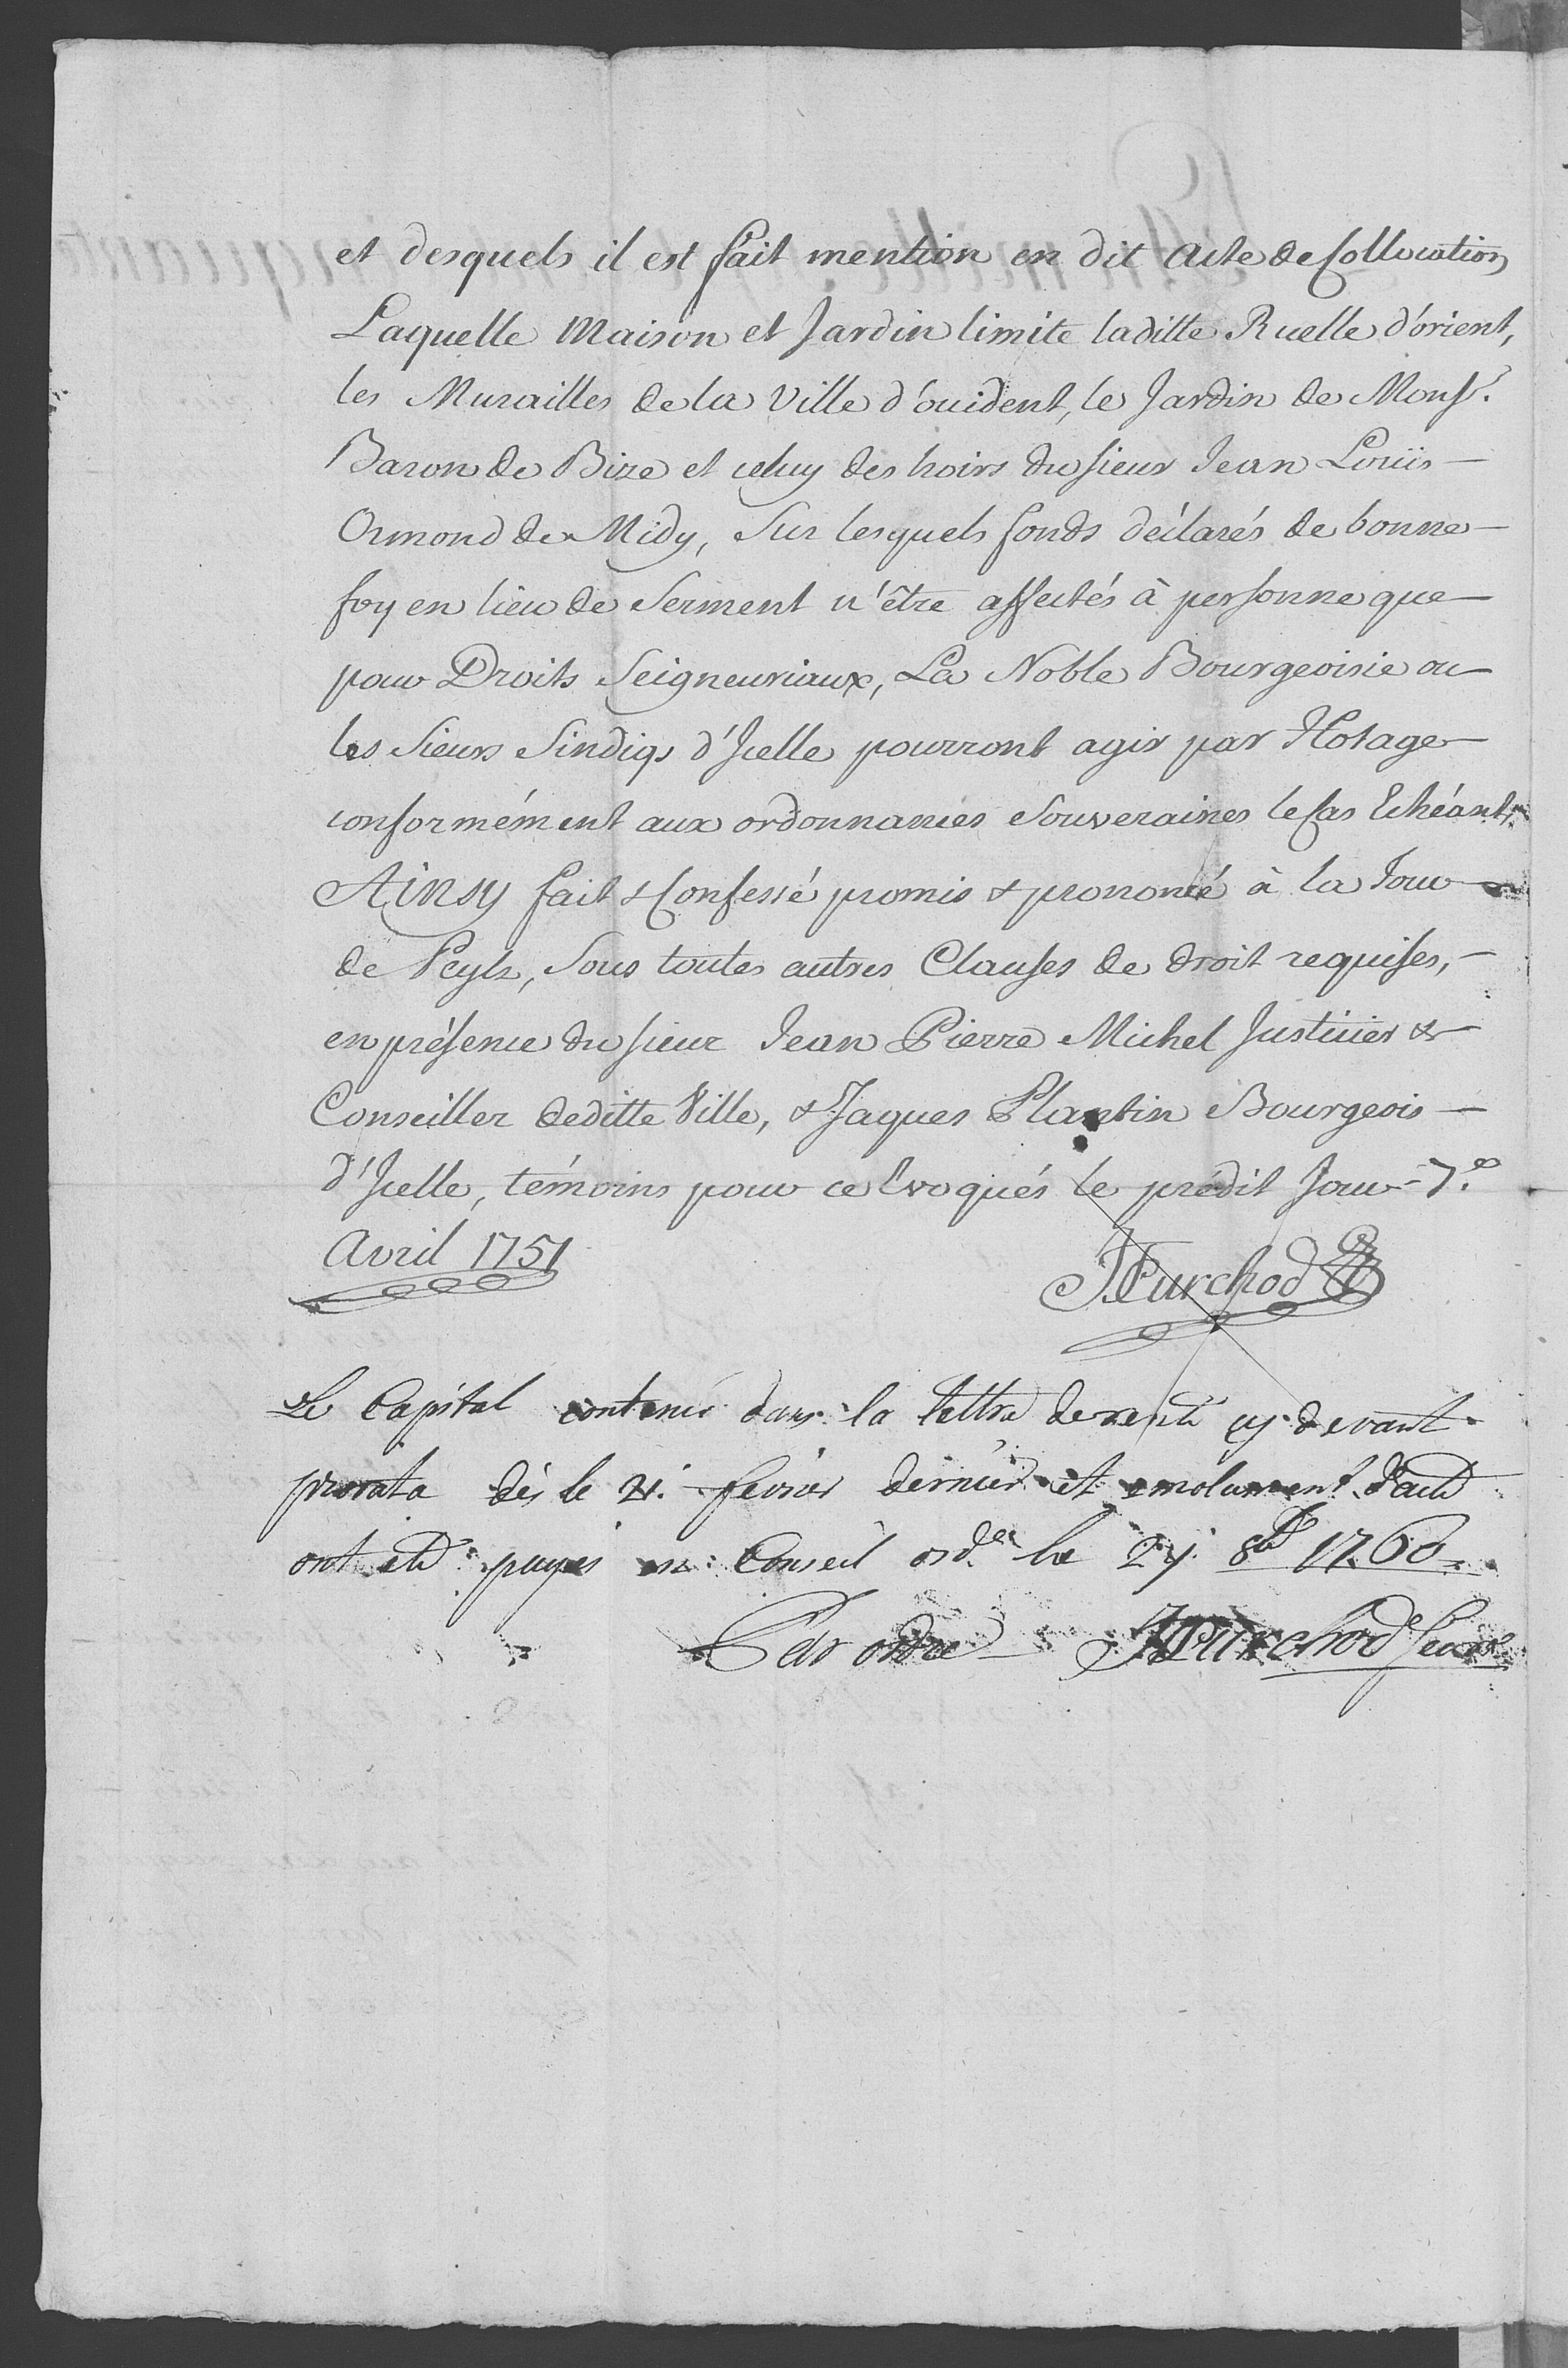 et desquels il est fait mention en dit Acte de Collocation
Laquelle Maison et Jardin limite laditte Ruelle d'orient,
les Murailles de la Ville d'occident, le Jardin de Monsr.
Baron de Bize et celuy des hoirs du sieur Jean Louïs
Ormond de Midy, Sur lesquels fonds déclarés de bonne
foy en lieu de Serment n'être affectés à personne que
pour Droits Seigneuriaux, La Noble Bourgeoisie ou
les Sieurs Sindiqs d'Icelle pourront agir par Hotage
conformément aux ordonnances Souveraines le Cas Echéant,
Ainsy fait & Confessé promis & prononcé à la Tour
de Peylz, Sous toutes autres Clauses de droit requises,
en présence du sieur Jean Pierre Michel Justicier &
Conseiller deditte Ville, & Jaques Plantin Bourgeois
d'Icelle, témoins pour ce Evoqués le prédit Jour 7e
Avril 1751
JCurchod
Le Capital contenu dans la lettre de rente cy devant
prorata dès le 21. fevrier dernier et emolument d'acte
ont eté payés en Conseil ordre le 27 8bre 1760
Par ordre JCurchod Secre